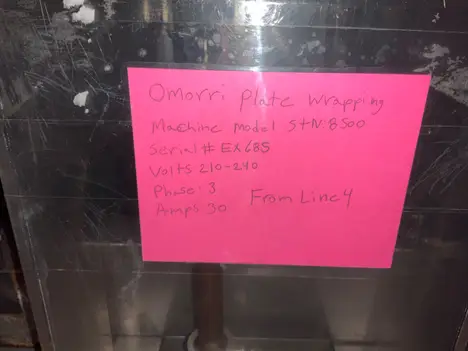 Omorri Plate Wrapping
Machine Model STN8500
Serial # EX685
Volts 210-240
Phase: 3
Amps 30
From Line 4